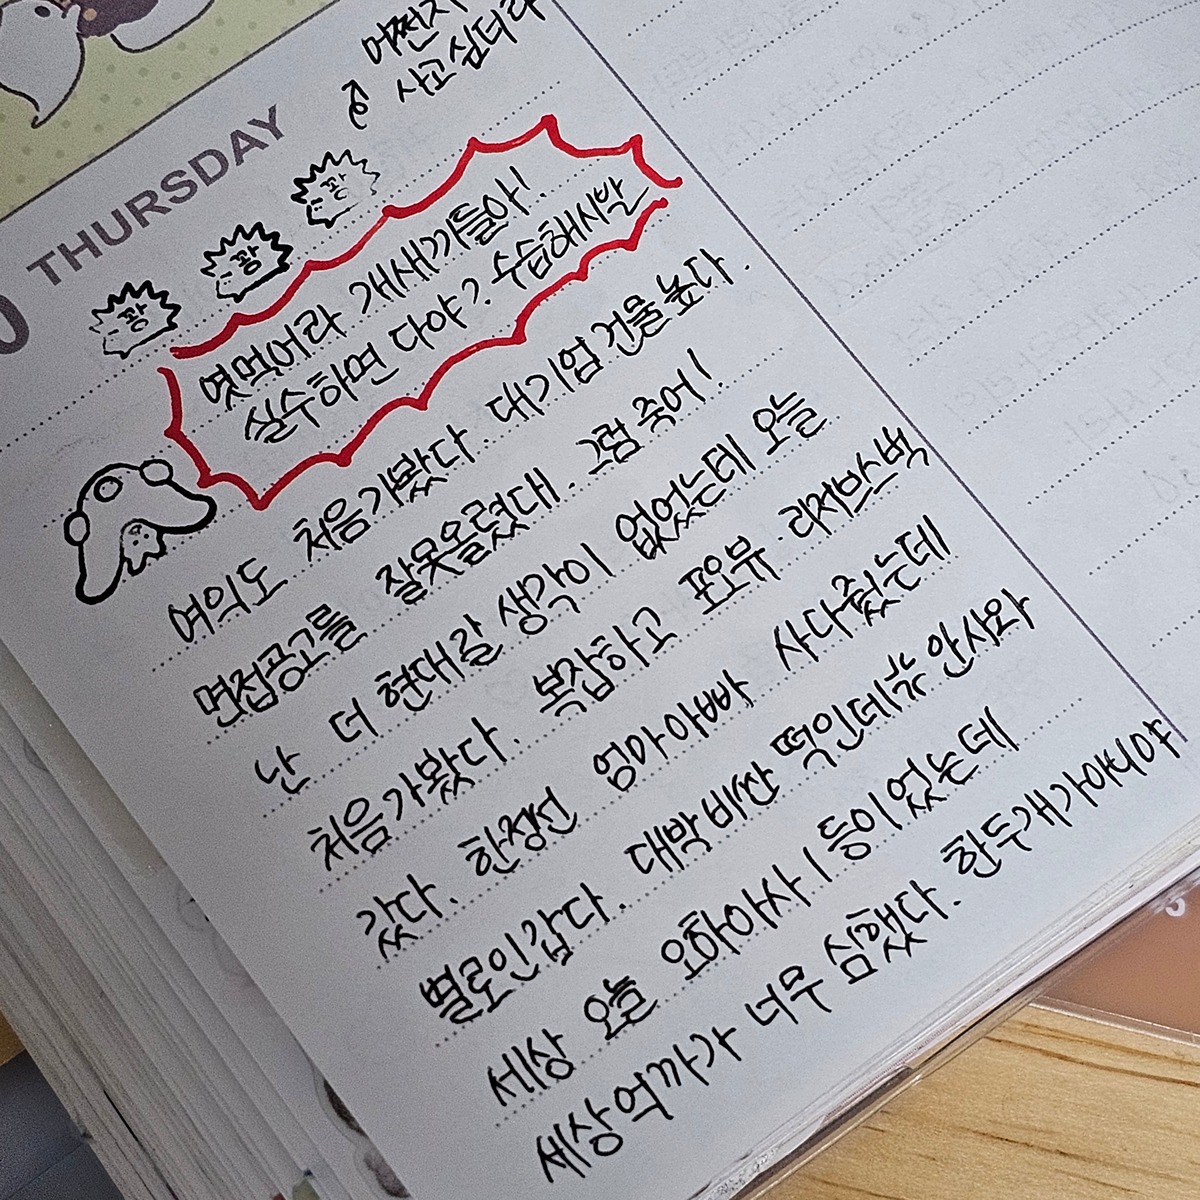 어쩐지
사고싶더라
THURSDAY
0
꽝
꽝
꽝
엿먹어라 개새끼들아!
실수하면 다야? 수습해시발
여의도 처음가봤다. 대기업 건물높다.
면접공고를 잘못올렸대. 그럼 죽어!
난 더 현대갈 생각이 없었는데 오늘
처음가봤다. 복잡하고 포요뷰. 리저브스벅
갔다. 한정선 엄마아빠 사다줬는데
별로인갑다. 대박비싼 떡인데ㅠ 안사와
세상 오늘 요하아사 1등이었는데
세상억까가 너무 심했다. 한두개가아니야